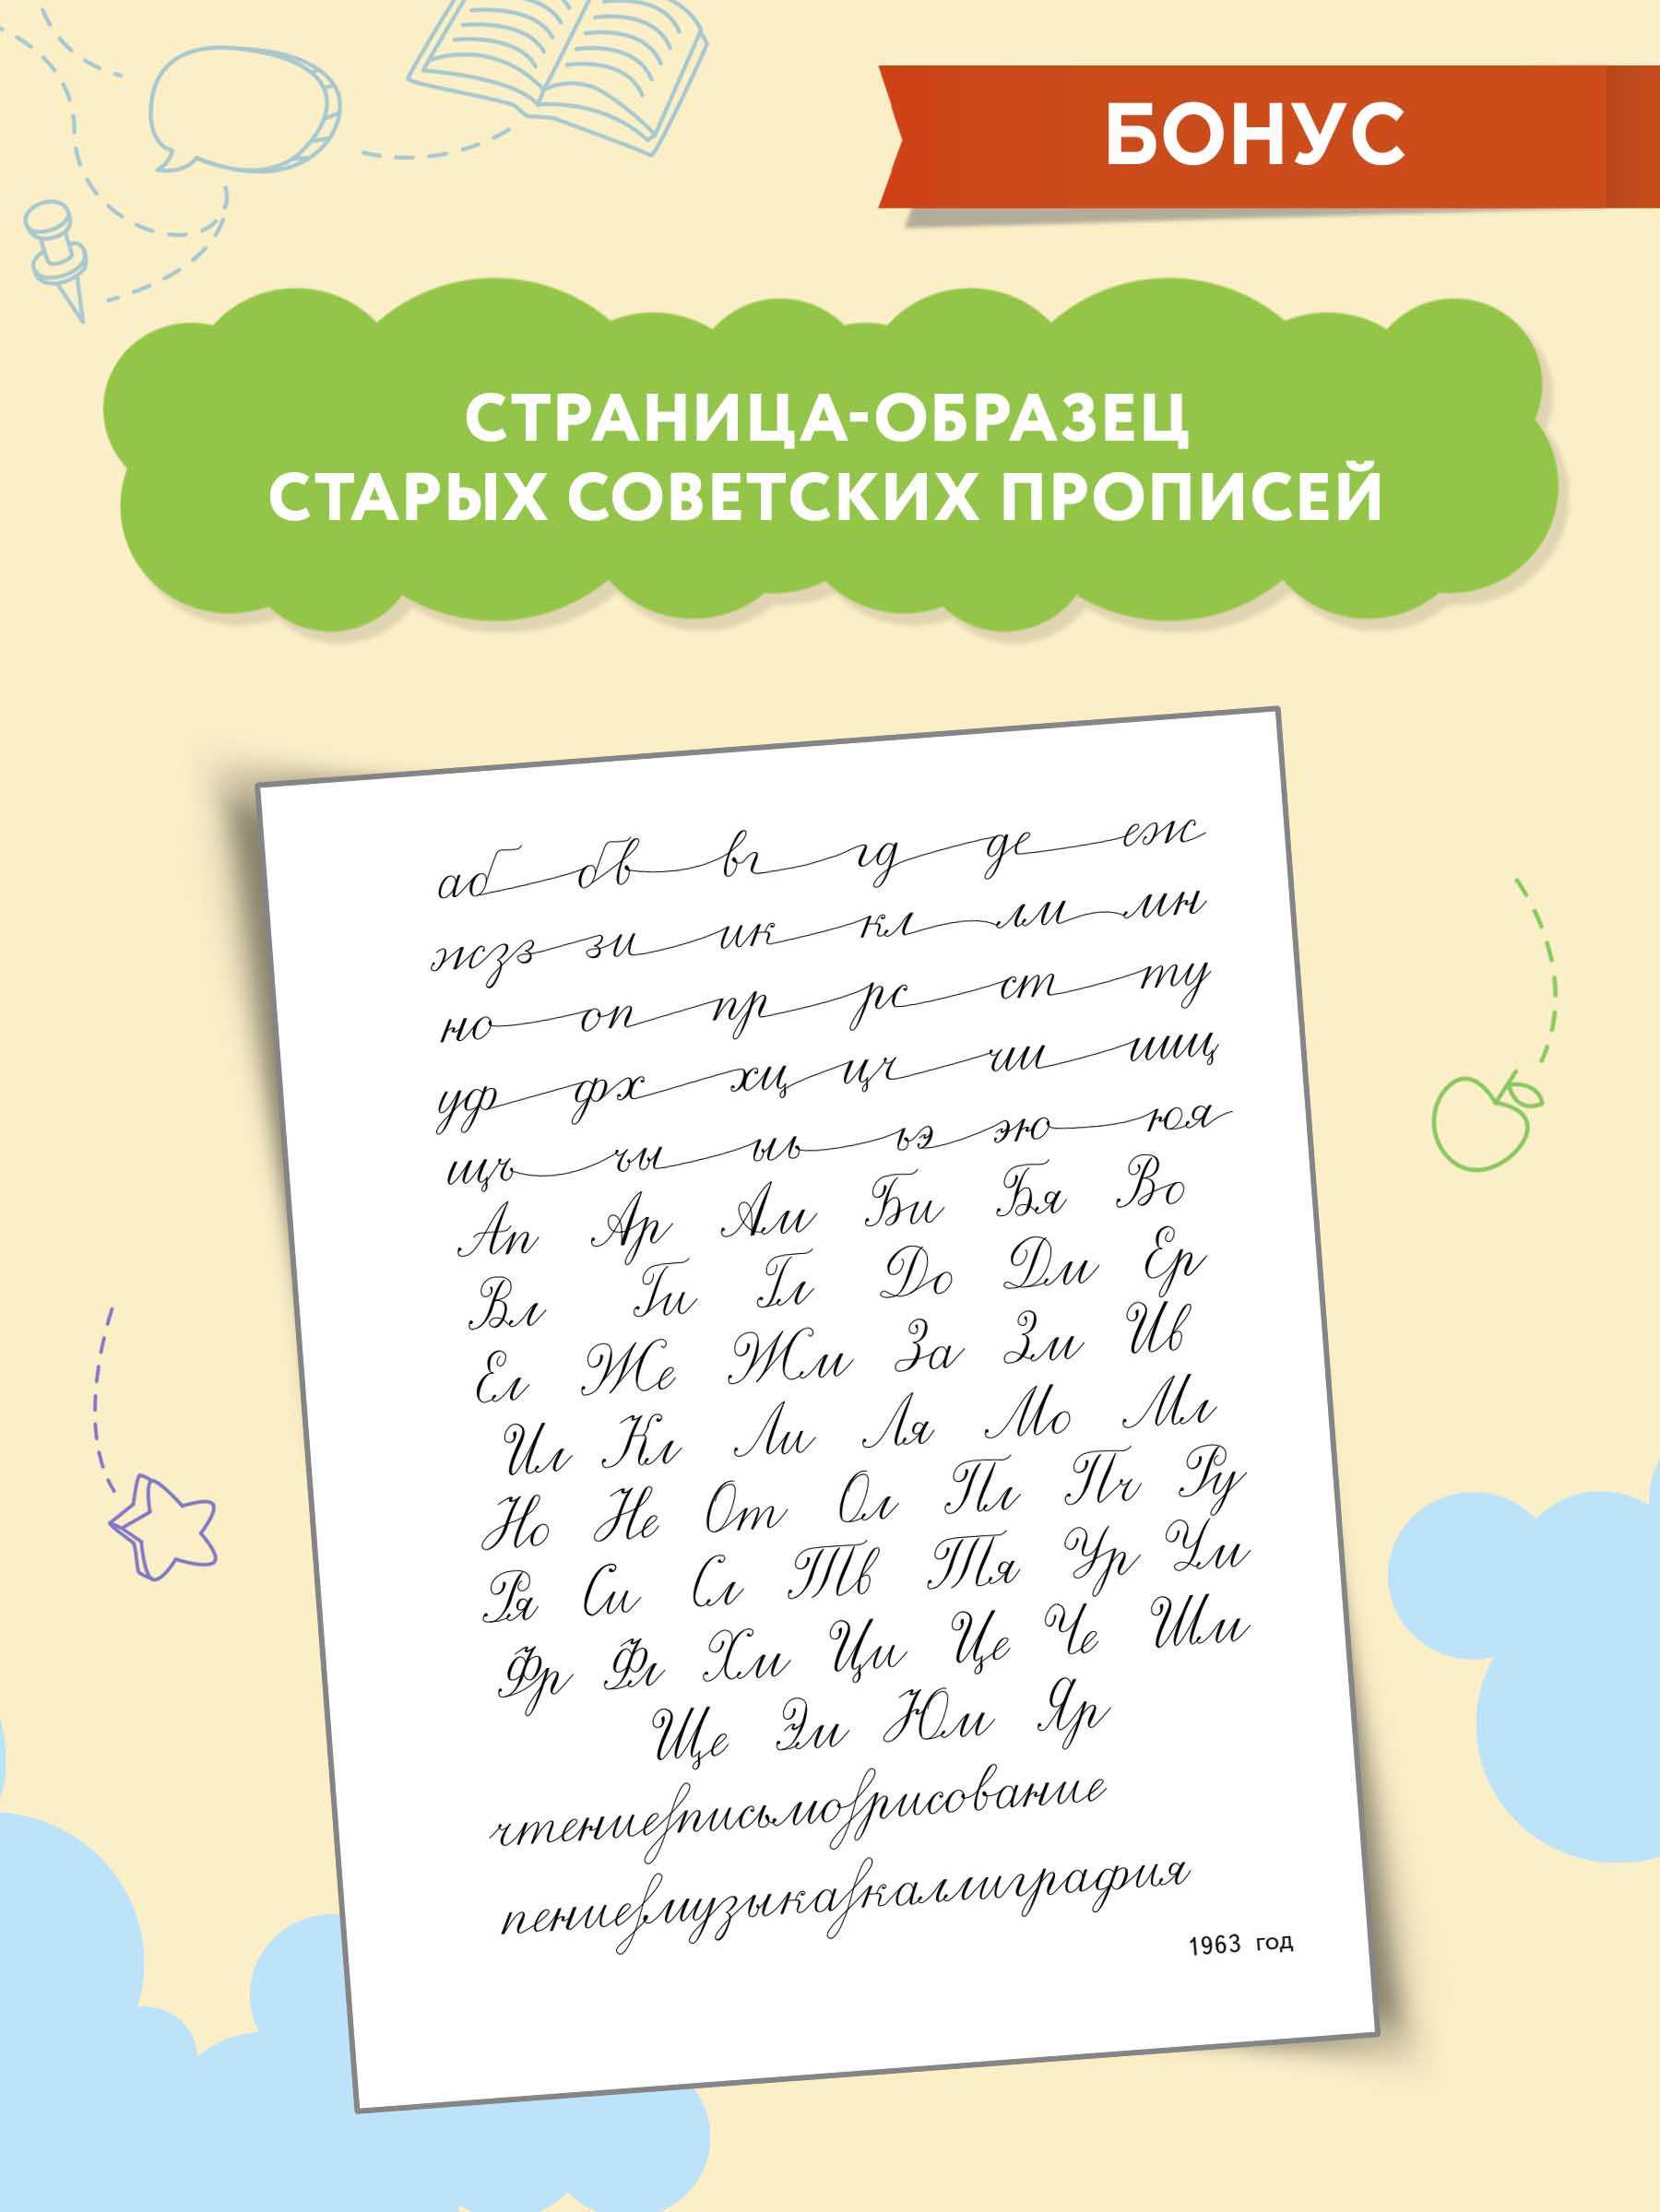 БОНУС
СТРАНИЦА-ОБРАЗЕЦ
СТАРЫХ СОВЕТСКИХ ПРОПИСЕЙ
аб бв вг гд де еж
жзз зи ик кл лм мн
но оп пр рс ст ту
уф фх хц цч чш шщ
щъ ъы ыь ьэ эю юя
Ап Ар Ам Би Бя Во
Вл Ги Гл До Дм Ер
Ел Же Жм За Зм Ив
Ил Кл Ли Ля Мо Мл
Но Не От Ол Пл Пч Ру
Ря Си Сл Тв Тя Ур Ум
Фр Фл Хм Ци Це Че Шм
Ще Эм Юм Яр
чтение письмо рисование
пение музыка каллиграфия
1963 год